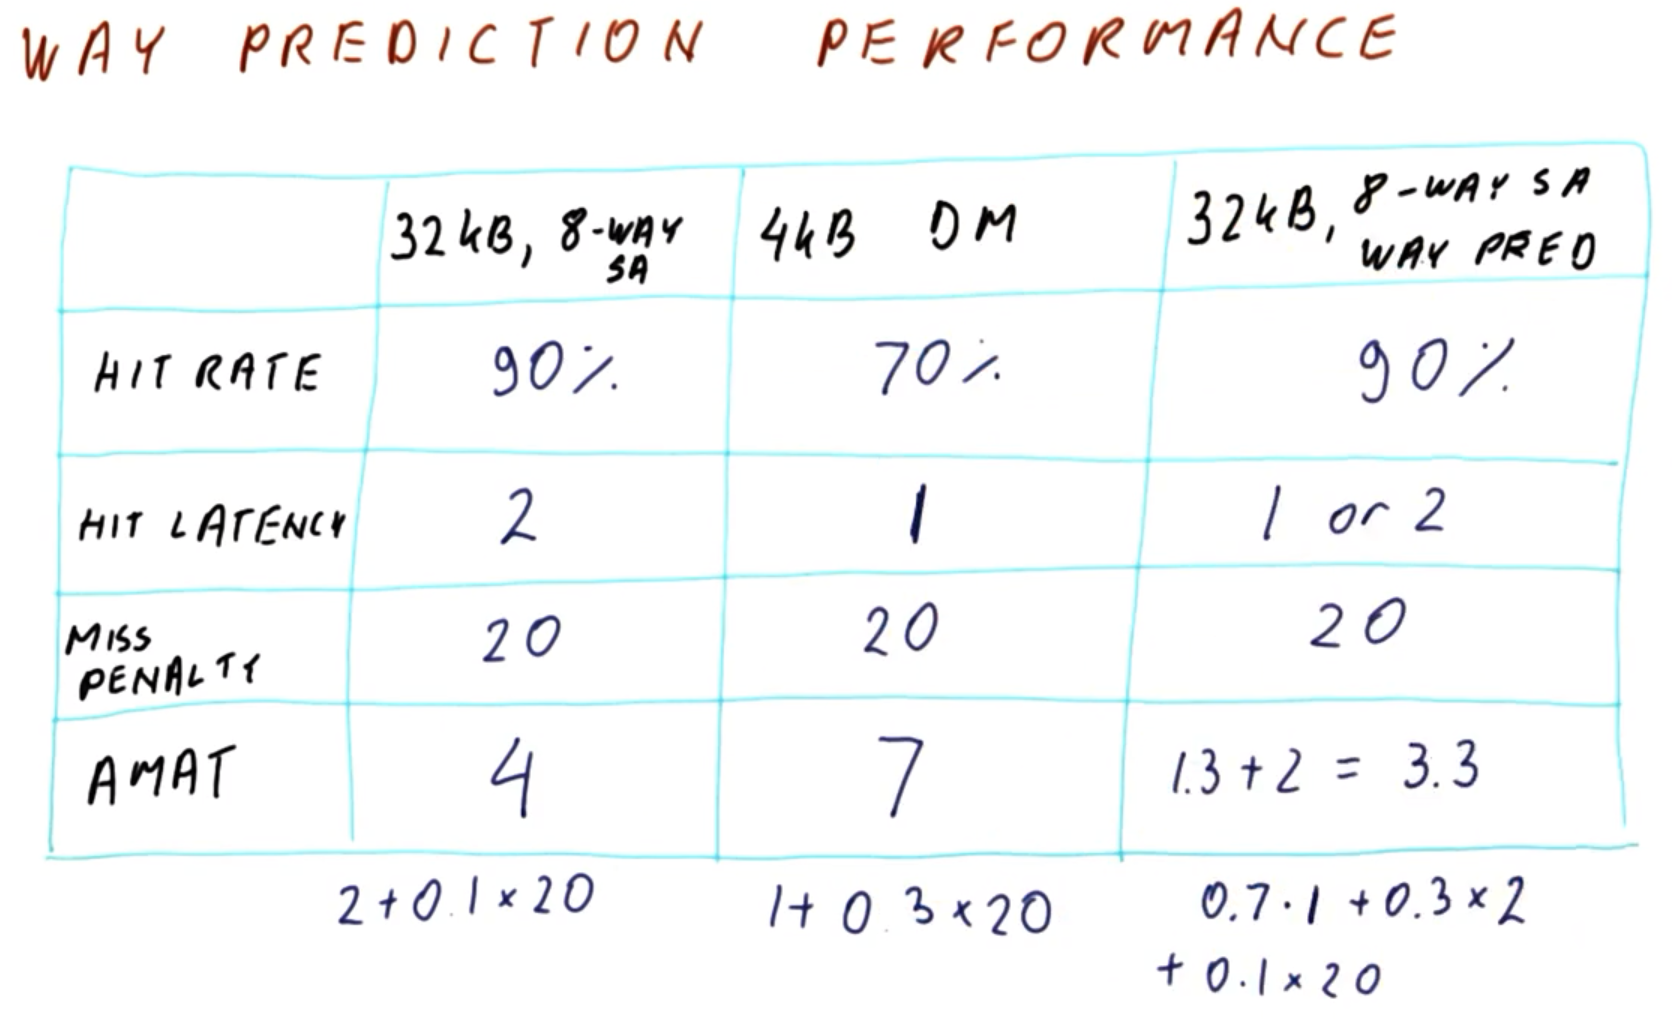 WAY PREDICTION PERFORMANCE
32kB, 8-WAY SA
4kB DM
32kB, 8-WAY SA WAY PRED
HIT RATE 90% 70% 90%
HIT LATENCY 2 1 1 or 2
MISS PENALTY 20 20 20
AMAT 4 7 1.3 + 2 = 3.3
2 + 0.1 × 20
1 + 0.3 × 20
0.7 · 1 + 0.3 × 2
+ 0.1 × 20